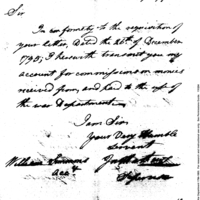 Sir
In conformity to the requisition of
your letter, Dated the 26th of December
1795, I herewith transmit you my
account for commissions on monies
received from, and paid to the use of
the war Department
I am Sir
Your Very Humble
Servant
William Simmons
acct